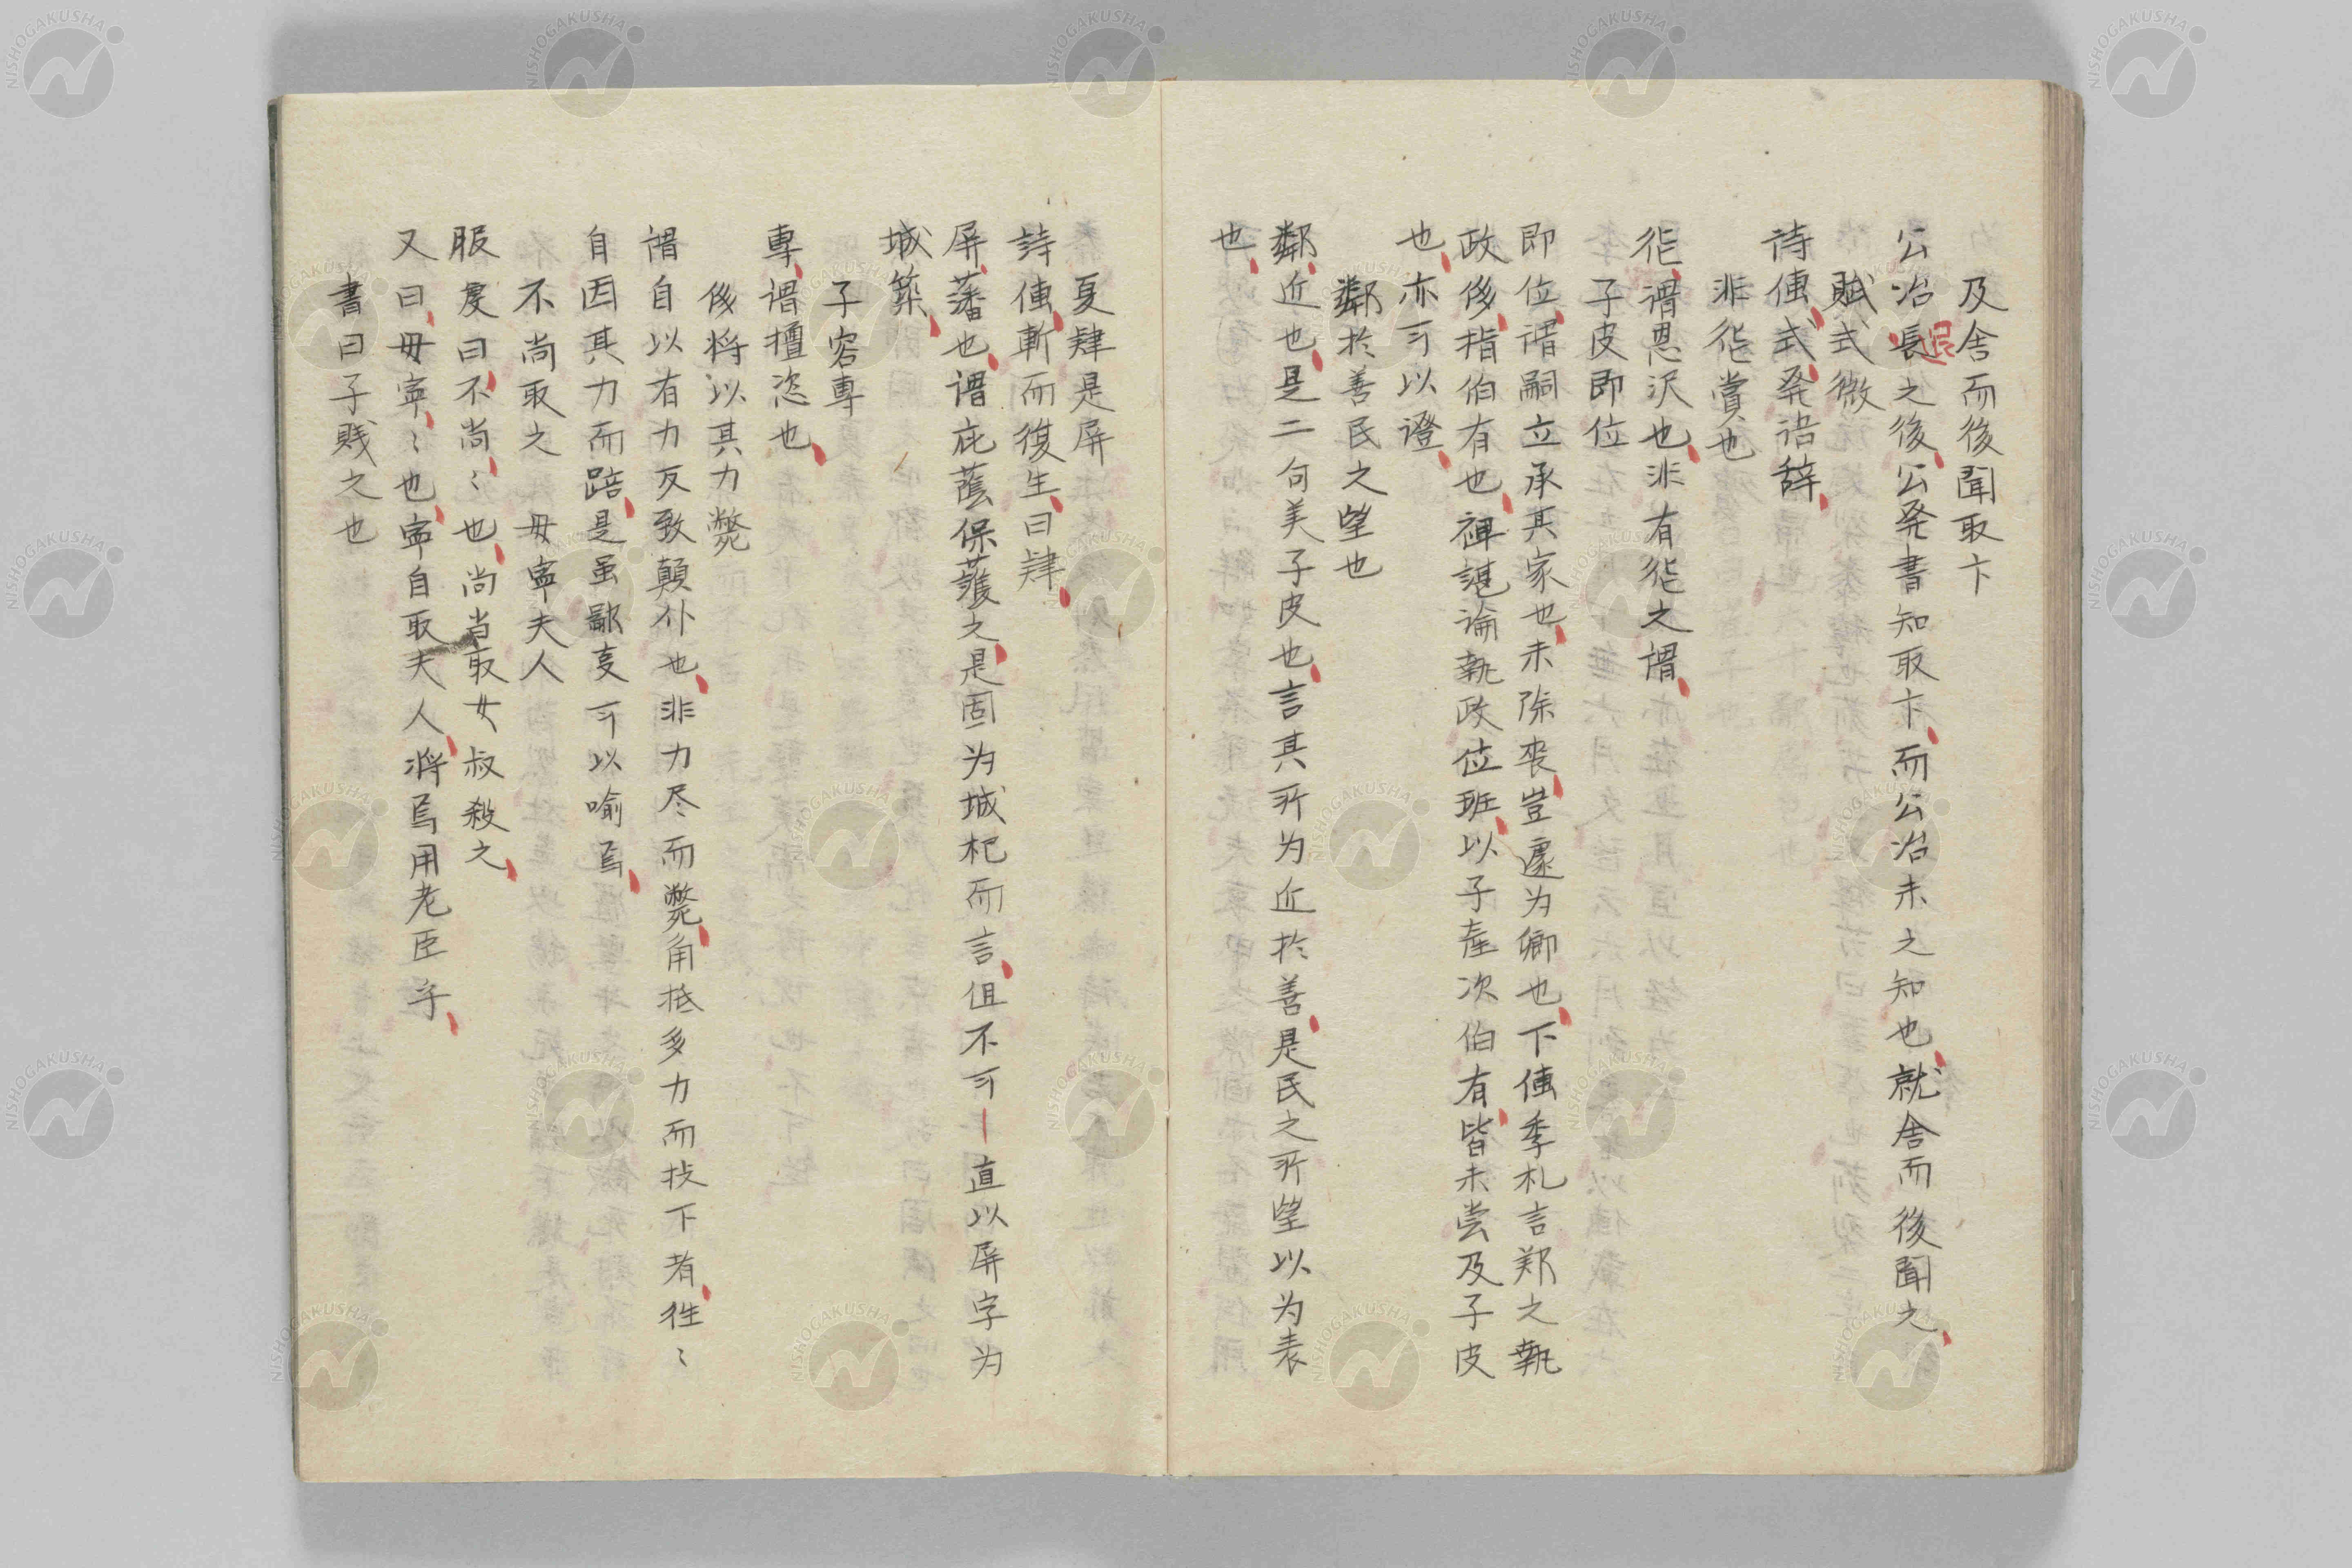 及舍而後聞取卞
公冶長退之後公発書知取卞而公冶未之知也就舍而後聞之
賦式微
詩傳式発语辞
非德賞也
德谓恩沢也非有德之谓
子皮即位
即位谓嗣立承其家也未除丧豈遽为卿也下傳季札言郑之執
政侈指伯有也裨諶论執政位班以子産次伯有皆未尝及子皮
也亦可以證
鄰於善民之望也
鄰近也是二句美子皮也言其所为近於善是民之所望以为表
也
夏肄是屏
詩傳斬而復生曰肄
屏藩也谓庇蔭保護之是固为城杞而言但不可｜直以屏字为
城築
子容專
專谓擅恣也
侈将以其力斃
谓自以有力反致顛仆也非力尽而斃角抵多力而技下者徃〻
自因其力而踣是虽鄙事可以喻焉
不尚取之　毋寧夫人
服虔曰不尚〻也尚当取女叔殺之
又曰毋寧〻也寧自取夫人将焉用老臣乎
書曰子賤之也
NISHOGAKUSHA